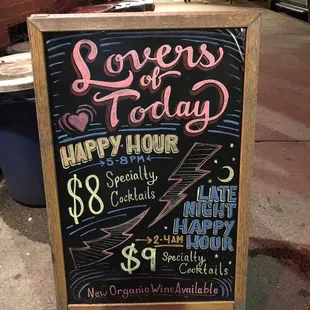 Lovers
of
Today
HAPPY HOUR
5-8PM
$8 Specialty
Cocktails
LATE
NIGHT
HAPPY
HOUR
2-4AM
$9 Specialty
Cocktails
New Organic Wine Available